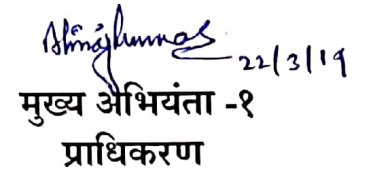 22/3/19
मुख्य अभियंता -१
प्राधिकरण